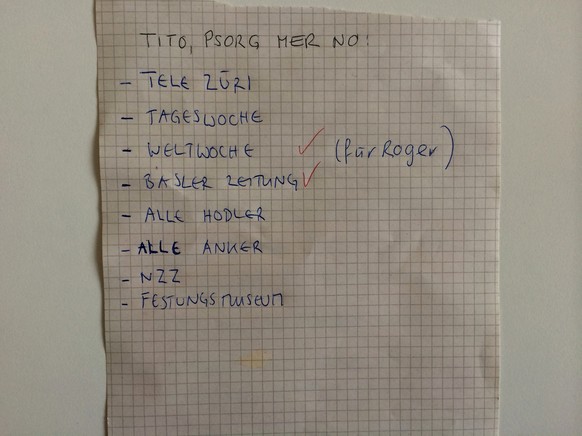 TITO, PSORG MER NO:
- TELE ZÜRI
- TAGESWOCHE
- WELTWOCHE ✓ (für Roger)
- BASLER ZEITUNG ✓
- ALLE HODLER
- ALLE ANKER
- NZZ
- FESTUNGSMUSEUM